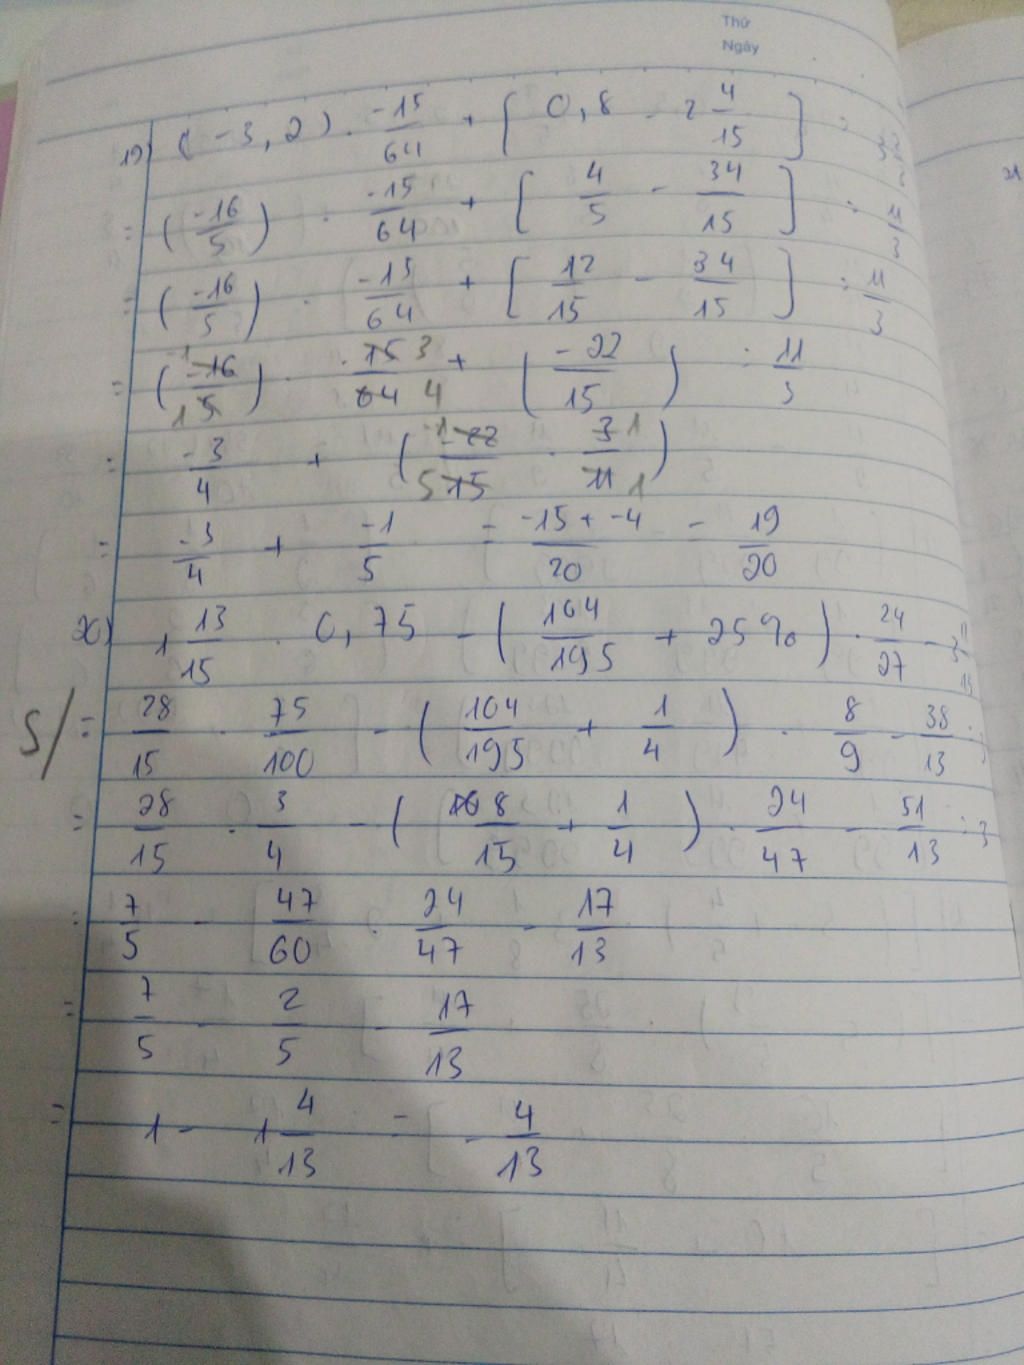 Thứ
Ngày
19) (-3,2) . -15/64 + [ 0,8 - 2 4/15 ] :
= (-16/5) . -15/64 + [ 4/5 - 34/15 ] : 11/3
= (-16/5) . -15/64 + [ 12/15 - 34/15 ] : 11/3
= (-16/5) . 15/64 + ( -22/15 ) : 11/3
= -3/4 + ( -22/15 . 3/11 )
= -3/4 + -1/5 = -15 + -4/20 = 19/20
20) 1 13/15 . 0,75 - ( 104/195 + 25% ) . 24/27 -
S/ = 28/15 . 75/100 - ( 104/195 + 1/4 ) . 8/9 - 38/13 :
= 28/15 . 3/4 - ( 8/15 + 1/4 ) . 24/47 - 51/13 : 3
= 7/5 - 47/60 . 24/47 - 17/13
= 7/5 - 2/5 - 17/13
= 1 - 1 4/13 = - 4/13
21